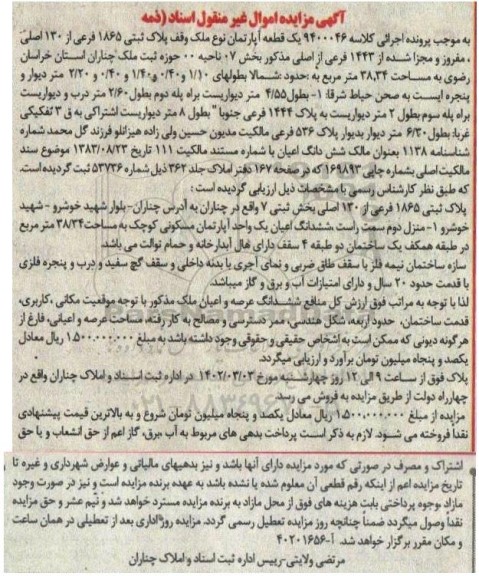 آگهی مزایده اموال غیر منقول اسناد (ذمه
به موجب پرونده اجرائی کلاسه ۹۴۰۰۰۴۶ یک قطعه آپارتمان نوع ملک وقف پلاک ثبتی ۱۸۶۵ فرعی از ۱۳۰ اصلی
، مفروز و مجزا شده از ۱۴۴۳ فرعی از اصلی مذکور بخش ۰۷ ناحیه ۰۰ حوزه ثبت ملک چناران استان خراسان
رضوی به مساحت ۳۸,۳۴ متر مربع به :حدود :شمالا بطولهای ۱/۱۰ و ۰/۴۰ و ۱/۴۰ و ۰/۴۰ و ۲/۲۰ متر دیوار و
پنجره ایست به صحن حیاط شرقا: ۱- بطول ۴/۵۵ متر دیواریست براه پله دوم بطول ۲/۶۰ متر درب و دیواریست
براه پله سوم بطول ۲ متر دیواریست به پلاک ۱۴۴۴ فرعی جنوبا " بطول ۸ متر دیواریست اشتراکی به ق ۳ تفکیکی
غربا: بطول ۶/۳۰ متر دیوار بدیوار پلاک ۵۳۶ فرعی مالکیت مدیون حسین ولی زاده هیزانلو فرزند گل محمد شماره
شناسنامه ۱۱۳۸ بعنوان مالک شش دانگ اعیان با شماره مستند مالکیت ۱۱۱ تاریخ ۱۳۸۳/۰۸/۲۳ موضوع سند
مالکیت اصلی بشماره چاپی ۱۶۹۸۹۳ که در صفحه ۱۶۷ دفتر املاک جلد ۳۶۲ ذیل شماره ۵۳۷۳۶ ثبت گردیده است.
که طبق نظر کارشناس رسمی با مشخصات ذیل ارزیابی گردیده است :
پلاک ثبتی ۱۸۶۵ فرعی از ۱۳۰ اصلی بخش ثبتی ۷ واقع در چناران به آدرس چناران- بلوار شهید خوشرو - شهید
خوشرو ۱- منزل دوم سمت راست ،ششدانگ اعیان یک واحد آپارتمان مسکونی کوچک به مساحت ۳۸/۳۴ متر مربع
در طبقه همکف یک ساختمان دو طبقه ۴ سقف دارای هال آبدارخانه و حمام توالت می باشد.
سازه ساختمان نیمه فلز با سقف طاق ضربی و نمای آجری با بدنه داخلی و سقف گچ سفید و درب و پنجره فلزی
با قدمت حدود ۲۰ سال و دارای امتیازات آب و برق و گاز میباشد.
لذا با توجه به مراتب فوق ارزش کل منافع ششدانگ عرصه و اعیان ملک مذکور با توجه موقعیت مکانی ،کاربری،
قدمت ساختمان، حدود اربعه، شکل هندسی، ممر دسترسی و مصالح به کار رفته، مساحت عرصه و اعیانی، فارغ از
هرگونه دیونی که ممکن است به اشخاص حقیقی و حقوقی وجود داشته باشد به مبلغ ۱.۵۰۰.۰۰۰.۰۰۰ ریال معادل
یکصد و پنجاه میلیون تومان برآورد و ارزیابی میگردد.
پلاک فوق از ساعت ۹ الی ۱۲ روز چهارشنبه مورخ ۱۴۰۲/۰۳/۰۳ در اداره ثبت اسناد و املاک چناران واقع در
چهارراه دولت از طریق مزایده به فروش می رسد.
مزایده از مبلغ ۱.۵۰۰.۰۰۰.۰۰۰ ریال معادل یکصد و پنجاه میلیون تومان شروع و به بالاترین قیمت پیشنهادی
نقداً فروخته می شود. لازم به ذکر است پرداخت بدهی های مربوط به آب ،برق، گاز اعم از حق انشعاب و یا حق
اشتراک و مصرف در صورتی که مورد مزایده دارای آنها باشد و نیز بدهیهای مالیاتی و عوارض شهرداری و غیره تا
تاریخ مزایده اعم از اینکه رقم قطعی آن معلوم شده یا نشده باشد به عهده برنده مزایده است و نیز در صورت وجود
مازاد ،وجوه پرداختی بابت هزینه های فوق از محل مازاد به برنده مزایده مسترد خواهد شد و نیم عشر و حق مزایده
نقداً وصول میگردد ضمناً چنانچه روز مزایده تعطیل رسمی گردد، مزایده روز اداری بعد از تعطیلی در همان ساعت
و مکان مقرر برگزار خواهد شد. آ-۴۰۲۰۱۶۵۶
مرتضی ولایتی-رییس اداره ثبت اسناد و املاک چناران